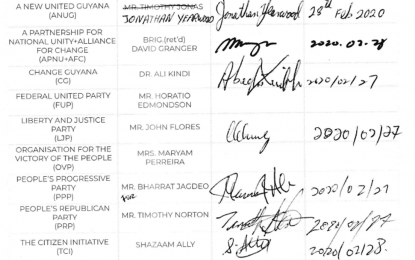 A NEW UNITED GUYANA
(ANUG)
MR. TIMOTHY JONAS
JONATHAN YEARWOOD
Jonathan Yearwood
28th Feb 2020
A PARTNERSHIP FOR
NATIONAL UNITY+ALLIANCE
FOR CHANGE
(APNU+AFC)
BRIG (ret'd)
DAVID GRANGER
2020.02.28
CHANGE GUYANA
(CG)
DR. ALI KINDI
2020/02/27
FEDERAL UNITED PARTY
(FUP)
MR. HORATIO
EDMONDSON
LIBERTY AND JUSTICE
PARTY
(LJP)
MR. JOHN FLORES
2020/02/27
ORGANISATION FOR THE
VICTORY OF THE PEOPLE
(OVP)
MRS. MARYAM
PERREIRA
PEOPLE'S PROGRESSIVE
PARTY
(PPP)
MR. BHARRAT JAGDEO
for
2020/02/27
PEOPLE'S REPUBLICAN
PARTY
(PRP)
MR. TIMOTHY NORTON
2020/02/27
THE CITIZEN INITIATIVE
(TCI)
SHAZAAM ALLY
S. Ally
2020/02/28.